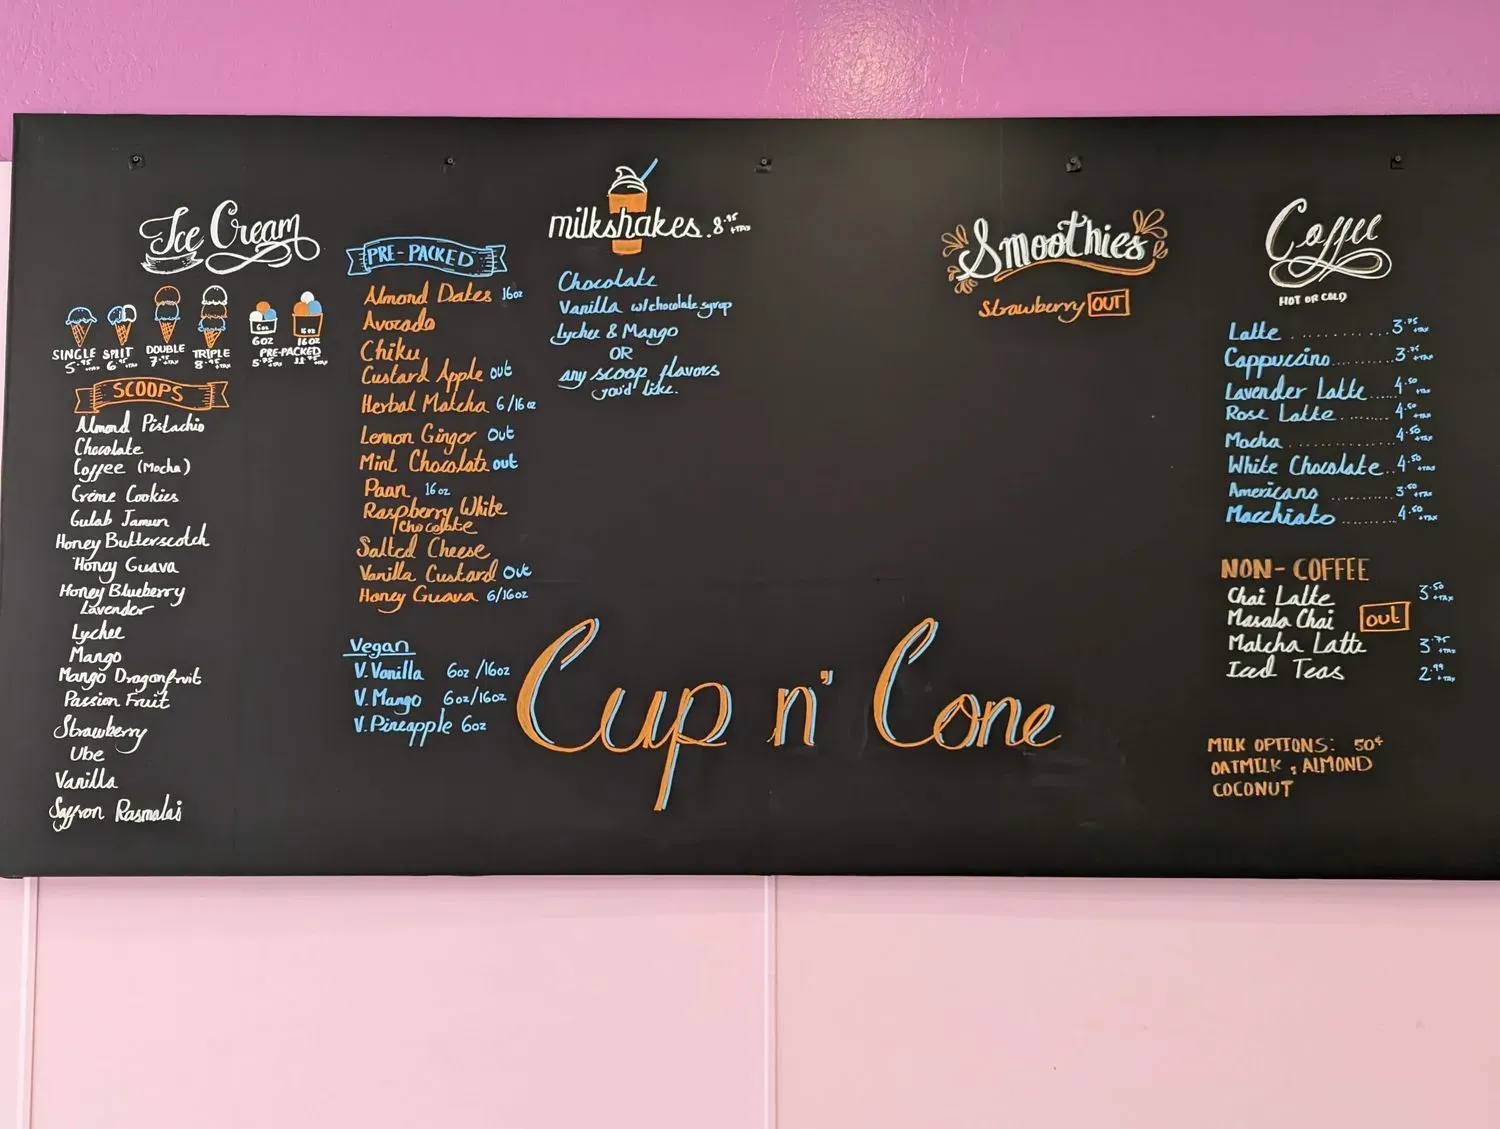 Ice Cream
SINGLE
5.95 +TAX
SPLIT
6.45 +TAX
DOUBLE
7.95 +TAX
TRIPLE
8.95 +TAX
6oz
16oz
6OZ 16OZ
PRE-PACKED
5.75 +TAX 11.75 +TAX
SCOOPS
Almond Pistachio
Chocolate
Coffee (Mocha)
Créme Cookies
Gulab Jamun
Honey Butterscotch
Honey Guava
Honey Blueberry
Lavender
Lychee
Mango
Mango Dragonfruit
Passion Fruit
Strawberry
Ube
Vanilla
Saffron Rasmalai
PRE-PACKED
Almond Dates 16oz
Avocado
Chiku
Custard Apple out
Herbal Matcha 6/16oz
Lemon Ginger Out
Mint Chocolate out
Paan 16oz
Raspberry White
Chocolate
Salted Cheese
Vanilla Custard Out
Honey Guava 6/16oz
Vegan
V.Vanilla 6oz/16oz
V.Mango 6oz/16oz
V.Pineapple 6oz
milkshakes. 8.95 +TAX
Chocolate
Vanilla w/chocolate syrup
Lychee & Mango
OR
any scoop flavors
you'd like.
Cup n' Cone
Smoothies
Strawberry OUT
Coffee
HOT OR COLD
Latte ............ 3.75 +TAX
Cappuccino ........ 3.75 +TAX
Lavender Latte ..... 4.50 +TAX
Rose Latte ........ 4.50 +TAX
Mocha ............ 4.50 +TAX
White Chocolate .. 4.50 +TAX
Americano ........... 3.50 +TAX
Macchiato ......... 4.50 +TAX
NON-COFFEE
Chai Latte 3.50 +TAX
Masala Chai out
Matcha Latte 3.75 +TAX
Iced Teas 2.99 +TAX
MILK OPTIONS: 50¢
OATMILK, ALMOND
COCONUT